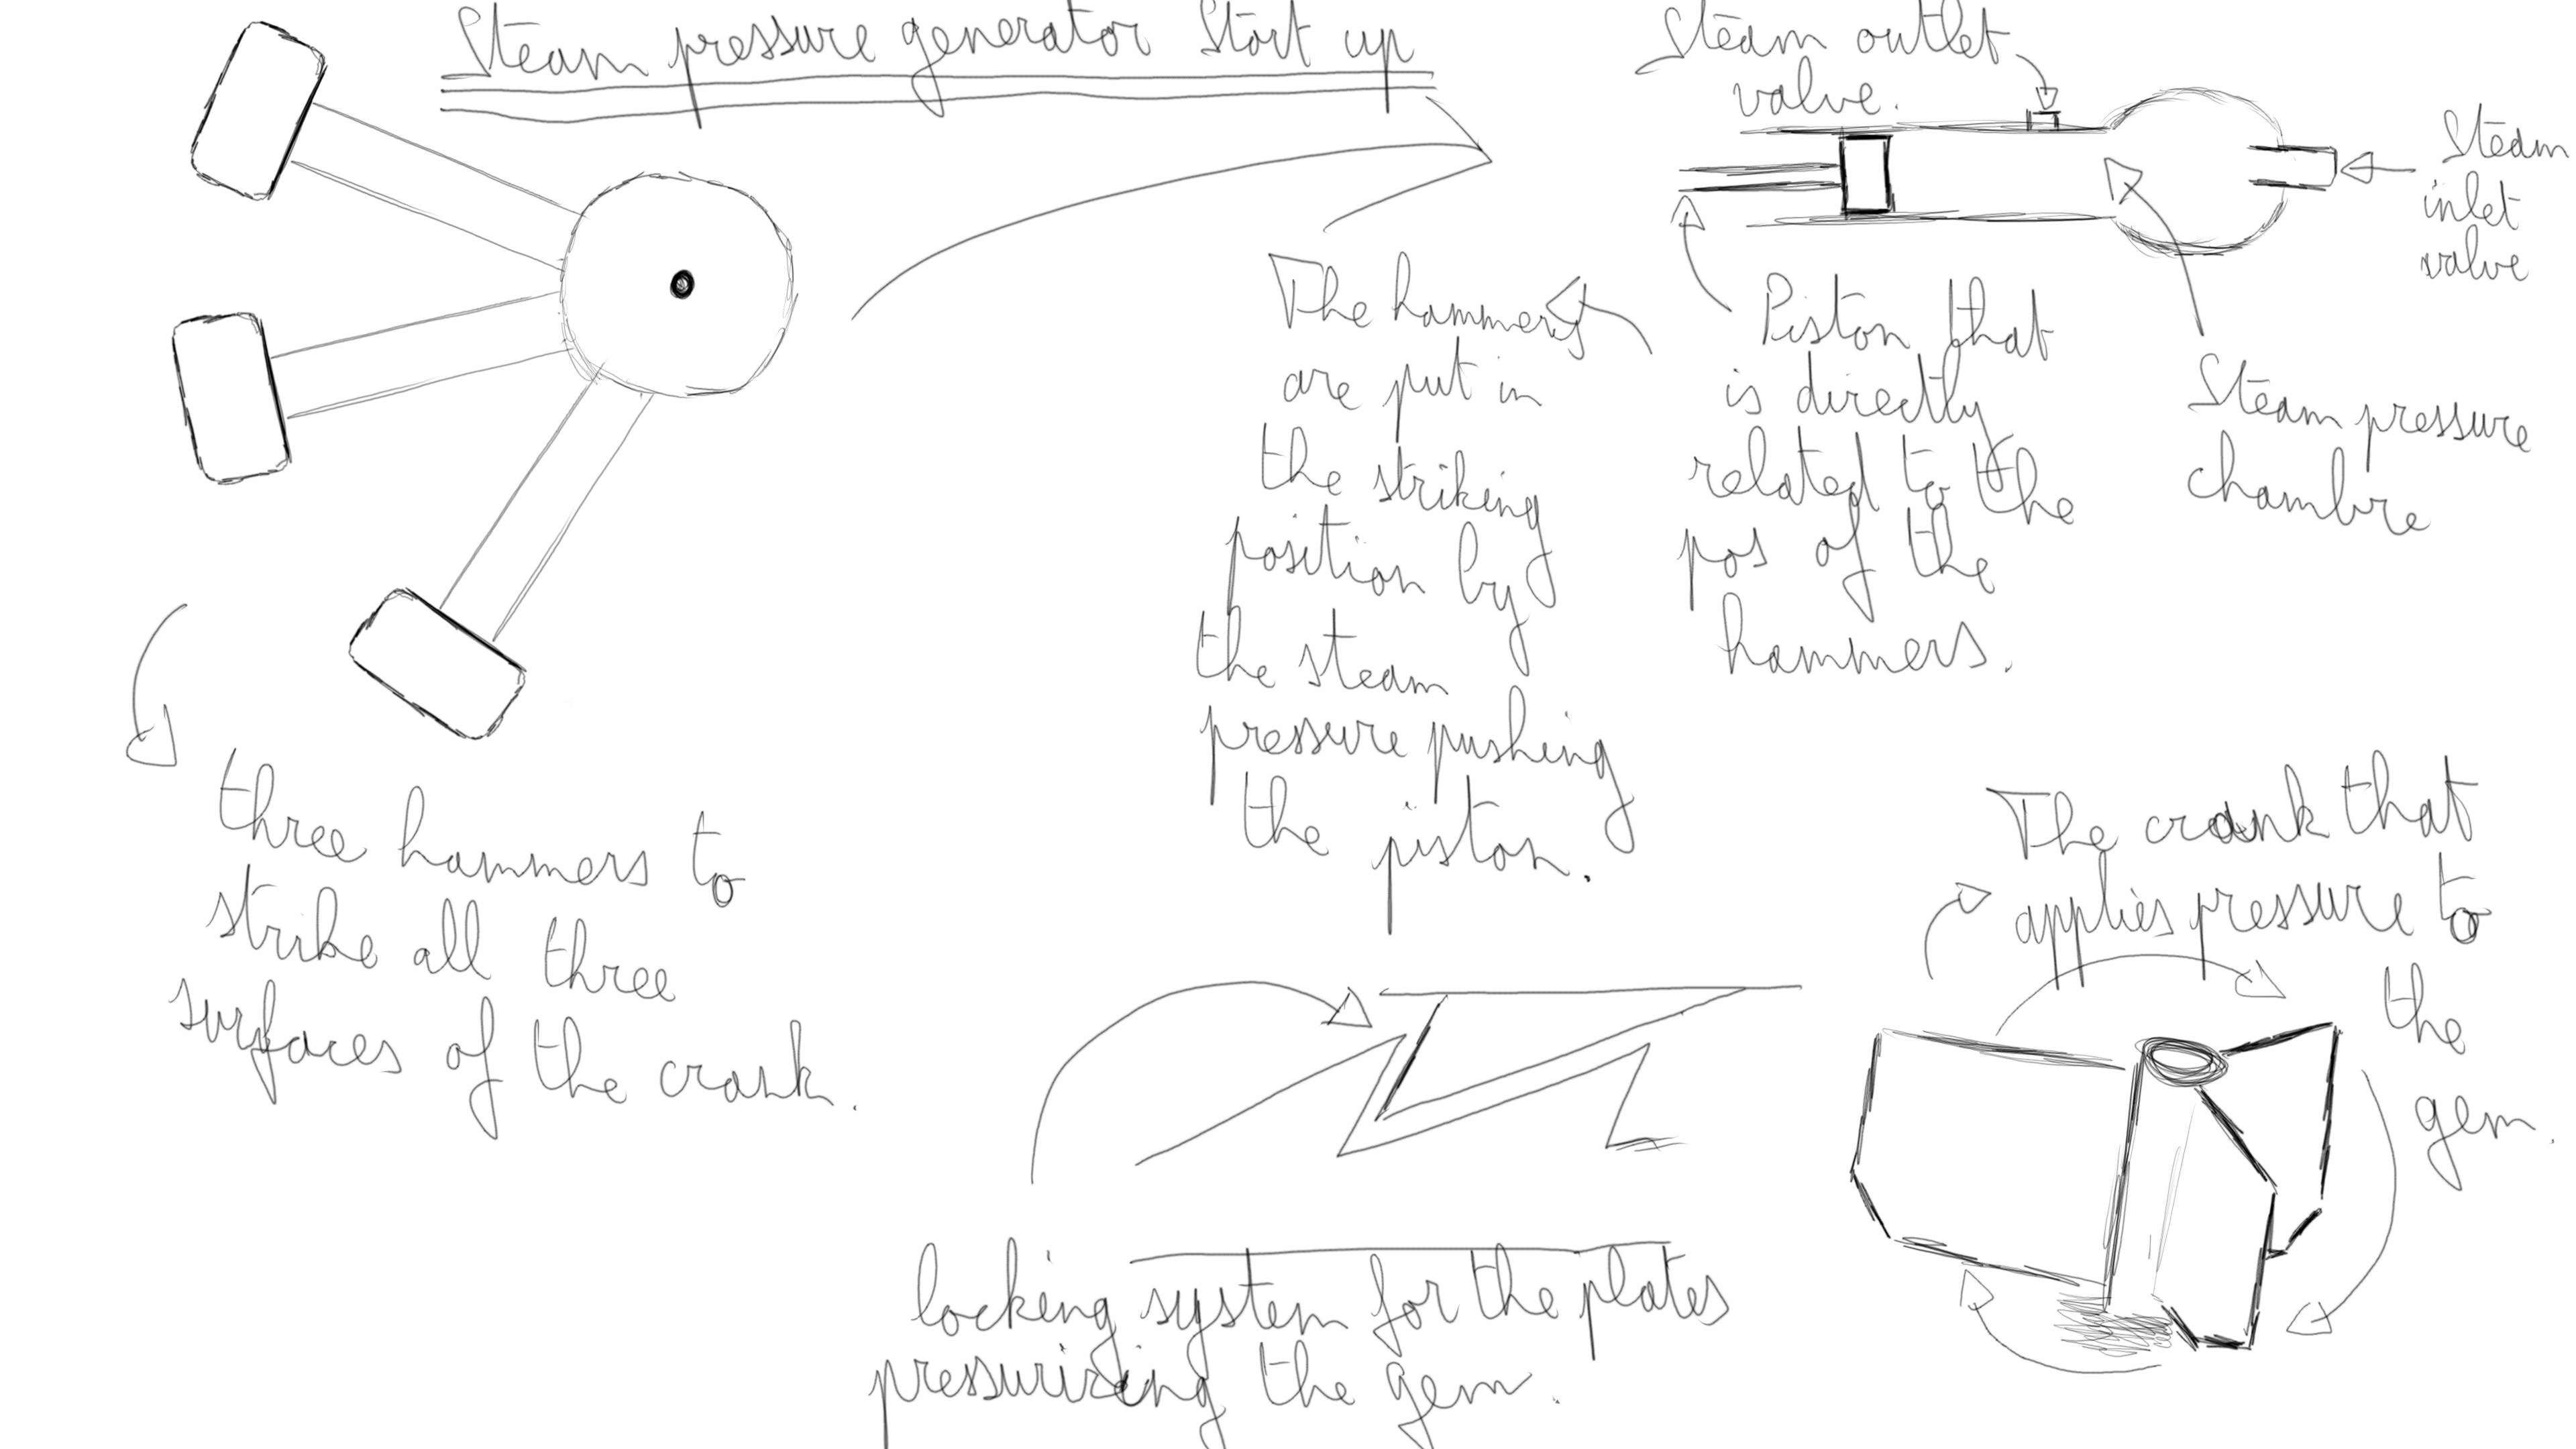 Steam pressure generator Start up
Steam outlet
valve.
Steam
inlet
valve
The hammers
are put in
the striking
position by
the steam
pressure pushing
the piston.
Piston that
is directly
related to the
pos of the
hammers.
Steam pressure
chambre
three hammers to
strike all three
surfaces of the crank.
The crank that
applies pressure to
the
gem.
locking system for the plates
pressurizing the gem.